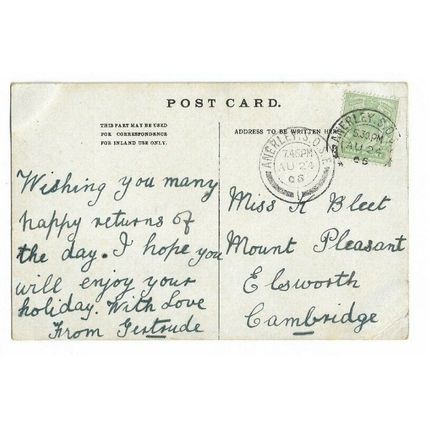 POST CARD.
THIS PART MAY BE USED
FOR CORRESPONDENCE
FOR INLAND USE ONLY.
ADDRESS TO BE WRITTEN HERE
ANERLEY. S.O. S.E
7.45PM
AU 24
06
ANERLEY. S.O.
5.30PM
AU 24
06
Wishing you many
happy returns of
the day. I hope you
will enjoy your
holiday. With Love
From Gertrude
Miss K Bleet
Mount Pleasant
Elsworth
Cambridge